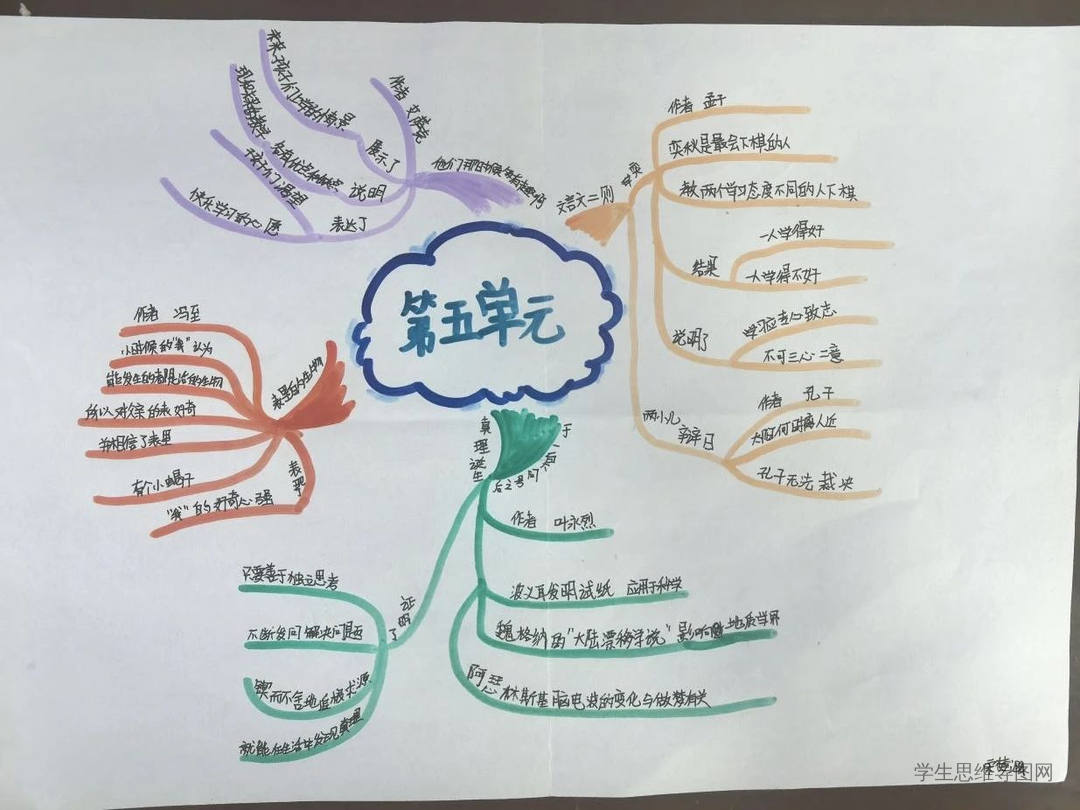 第五单元
文言文二则
学弈
作者 孟子
奕秋是最会下棋的人
教两个学习态度不同的人下棋
结果
一人学得好
一人学得不好
说明了
学习应专心致志
不可三心二意
两小儿
辩日
作者 孔子
太阳何时离人近
孔子无法裁决
真理诞生
于一百个
问号之后
作者 叶永烈
波义耳发明试纸 应用于科学
魏格纳的"大陆漂移学说"影响地质学界
阿瑟林斯基脑电波的变化与做梦有关
证明了
只要善于独立思考
不断发问 解决问题
锲而不舍地追根求源
就能在生活中发现真理
表里的生物
作者 冯至
小时候的"我"认为
能发生的都是活的生物
所以对父亲的表好奇
并相信了表里
有个小蝎子
表现了
"我"的好奇心强
他们那时候多有趣啊
作者 艾萨克
展示了
未来孩子们上学的情景
说明
各有优点和缺点
表达了
孩子们渴望
快乐学习的心愿
学生思维导图网